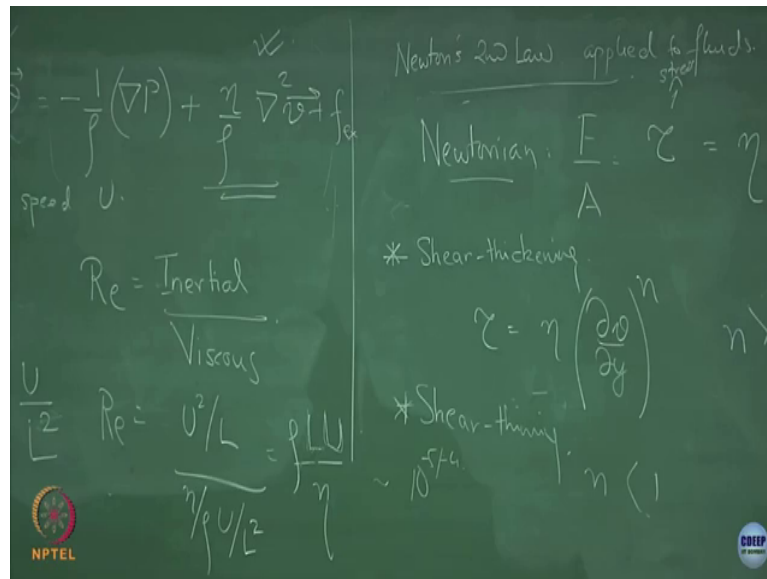 = -1/ρ (∇P) + η/ρ ∇²v⃗ + f_ex
speed U.
Re = Inertial
Viscous
U/L² Re = U²/L / η/ρ U/L² = ρLU/η ~ 10^-5/-4
Newton's 2nd Law applied to fluids.
stress
Newtonian: F/A = τ = η
* Shear-thickening.
τ = η (∂v/∂y)^n n >
* Shear-thining.
n < 1
NPTEL
CDEEP
IIT BOMBAY